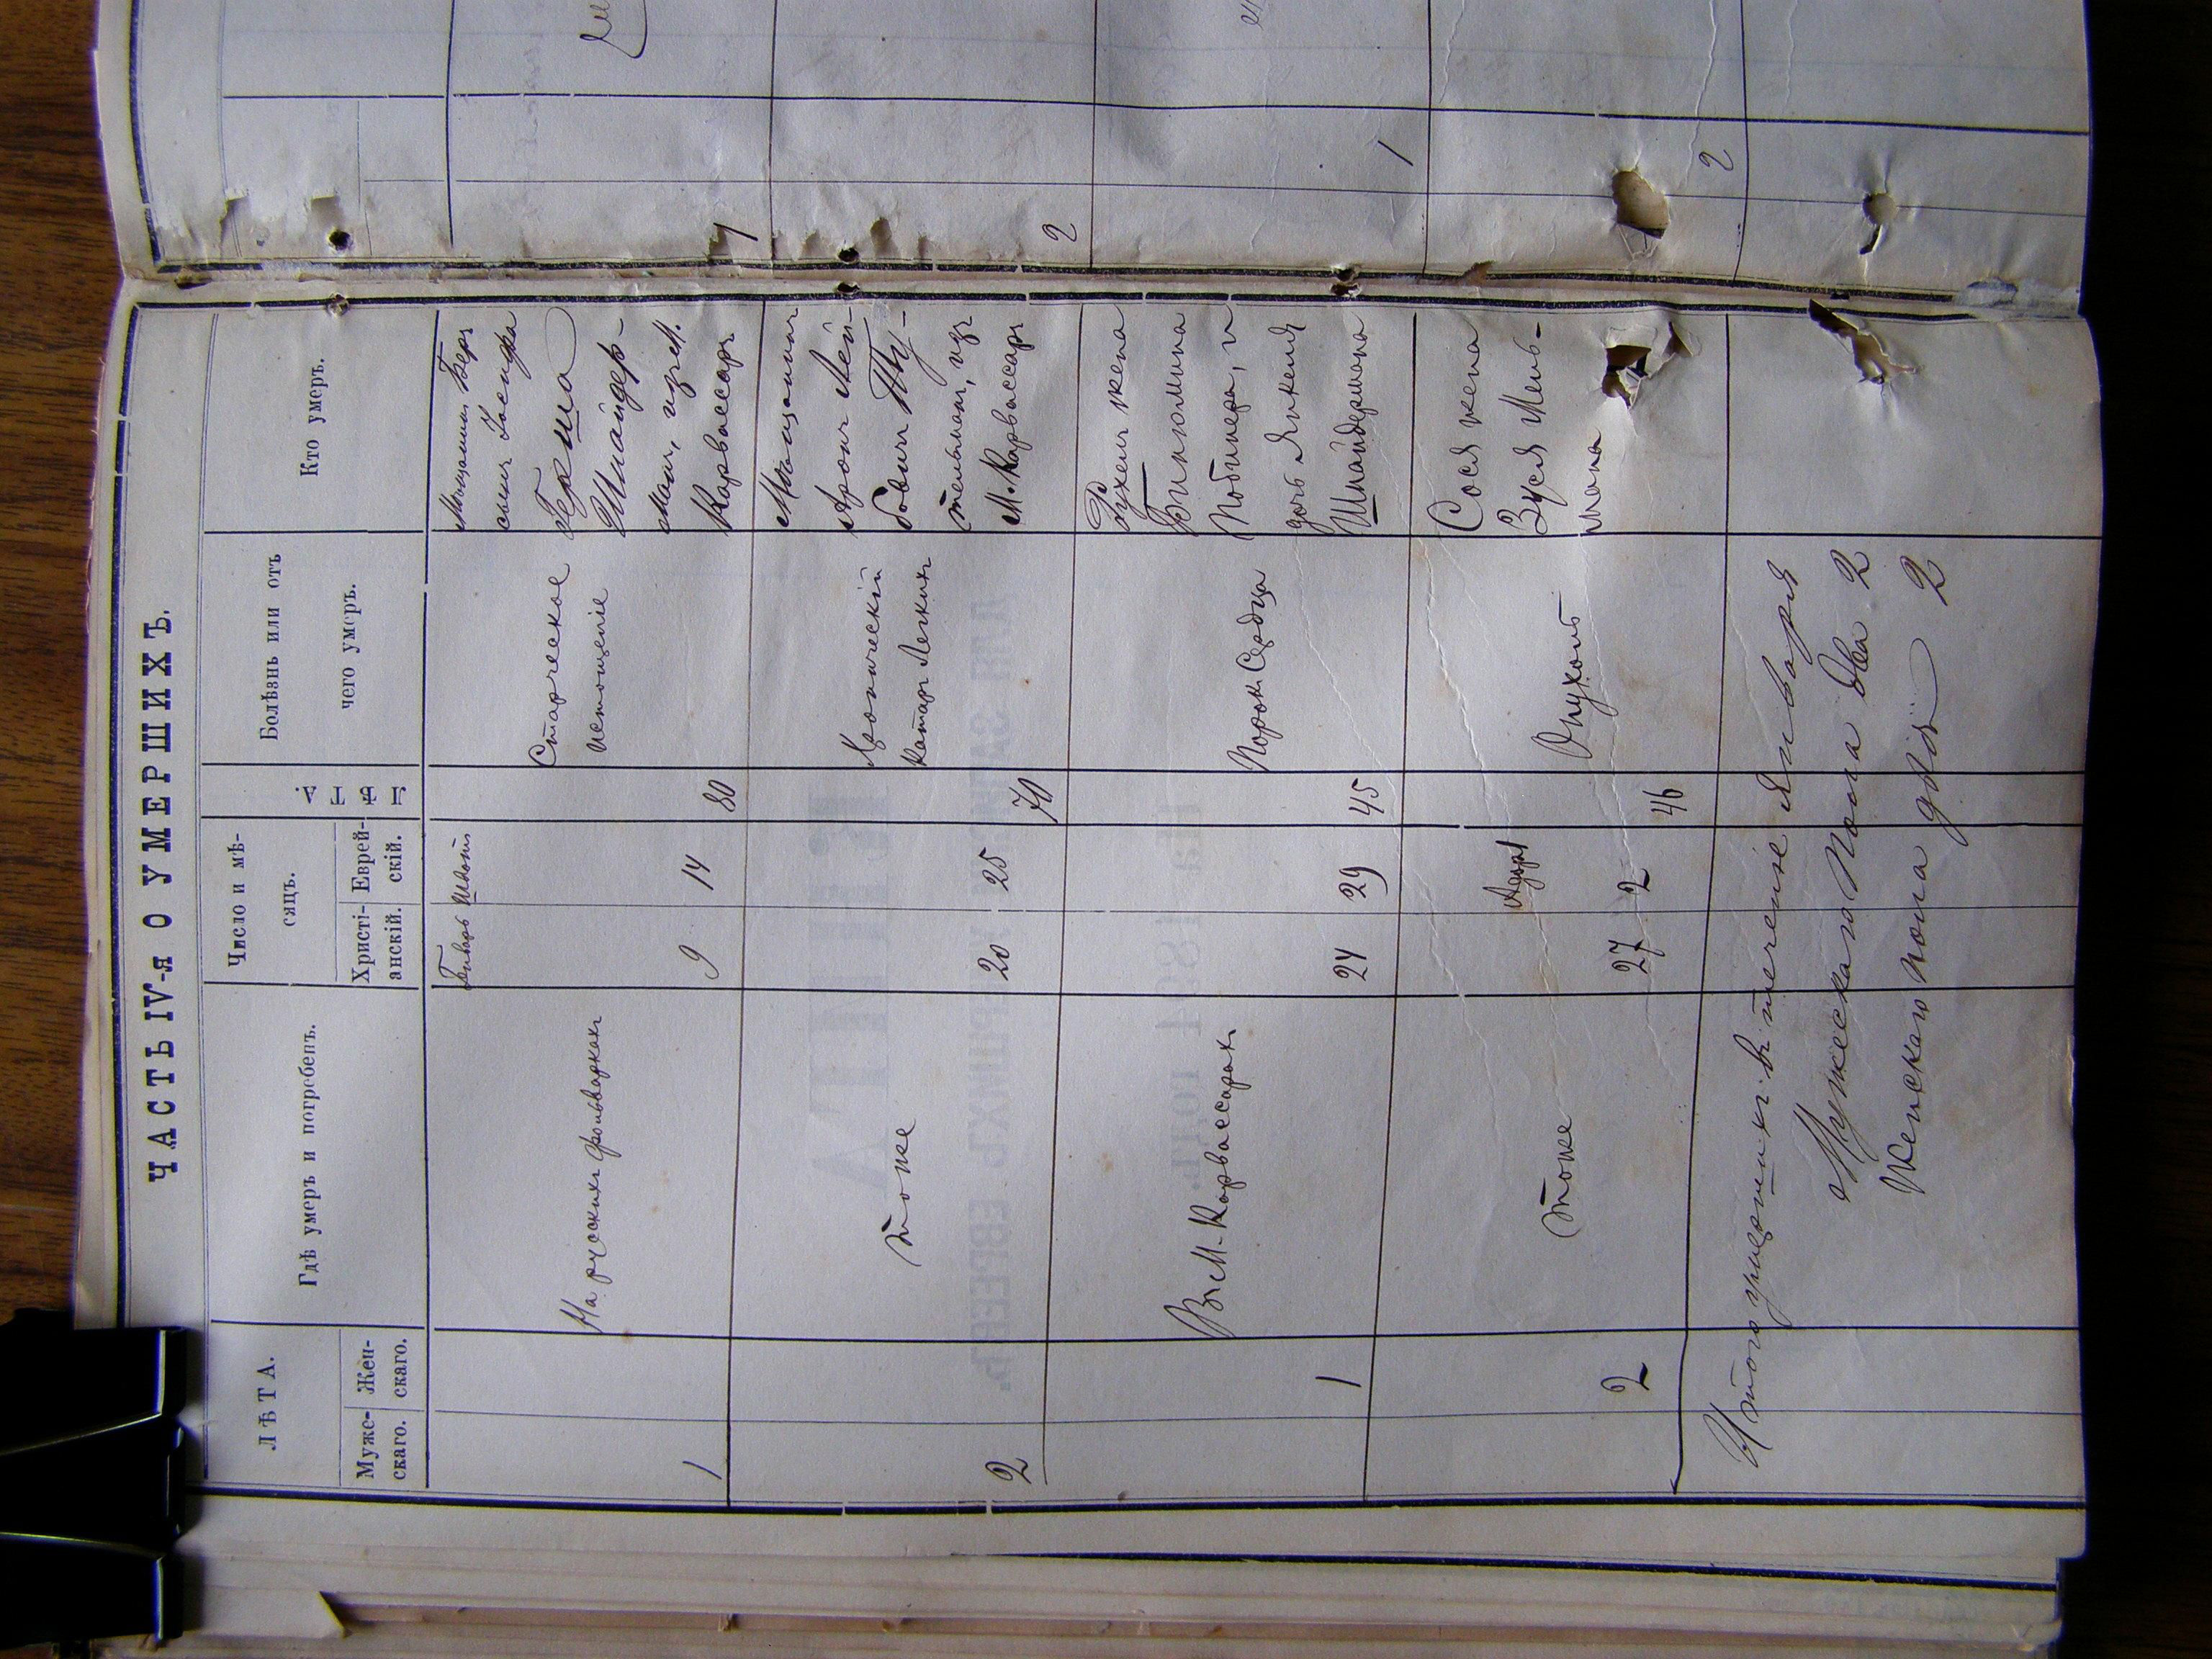 ЧАСТЬ IV-я О УМЕРШИХЪ.
ЛѢТА.
Муже-
скаго.
Жен-
скаго.
Гдѣ умеръ и погребенъ.
Число и мѣ-
сяцъ.
Христі-
анскій.
Еврей-
скій.
ЛѢТА
Болѣзнь или отъ
чего умеръ.
Кто умеръ.
1
На русскихъ фольваркахъ
Январь
9
Шватъ
14
80
Старческое
истощеніе
Мѣщанинъ Беръ
сынъ
Герша
Шнайдер-
манъ, изъ м.
Карвассаръ
1
2
тоже
20
25
70
Хроническій
катаръ Легкихъ
Мѣщанинъ
Аронъ Лей-
бовичъ
тельманъ, изъ
М. Карвассаръ
2
1
Въ М. Карвассарахъ
24
29
45
Порокъ Сердца
Рухель жена
Биньюмина
и
дочь Янкеля
Шнайдермана
1
2
тоже
27
Адаръ
2
46
Опухоль
Сося жена
Зуся Мель-
мана
2
Итого умершихъ въ теченіе Января
Мужескаго Пола два 2
Женскаго пола двѣ 2